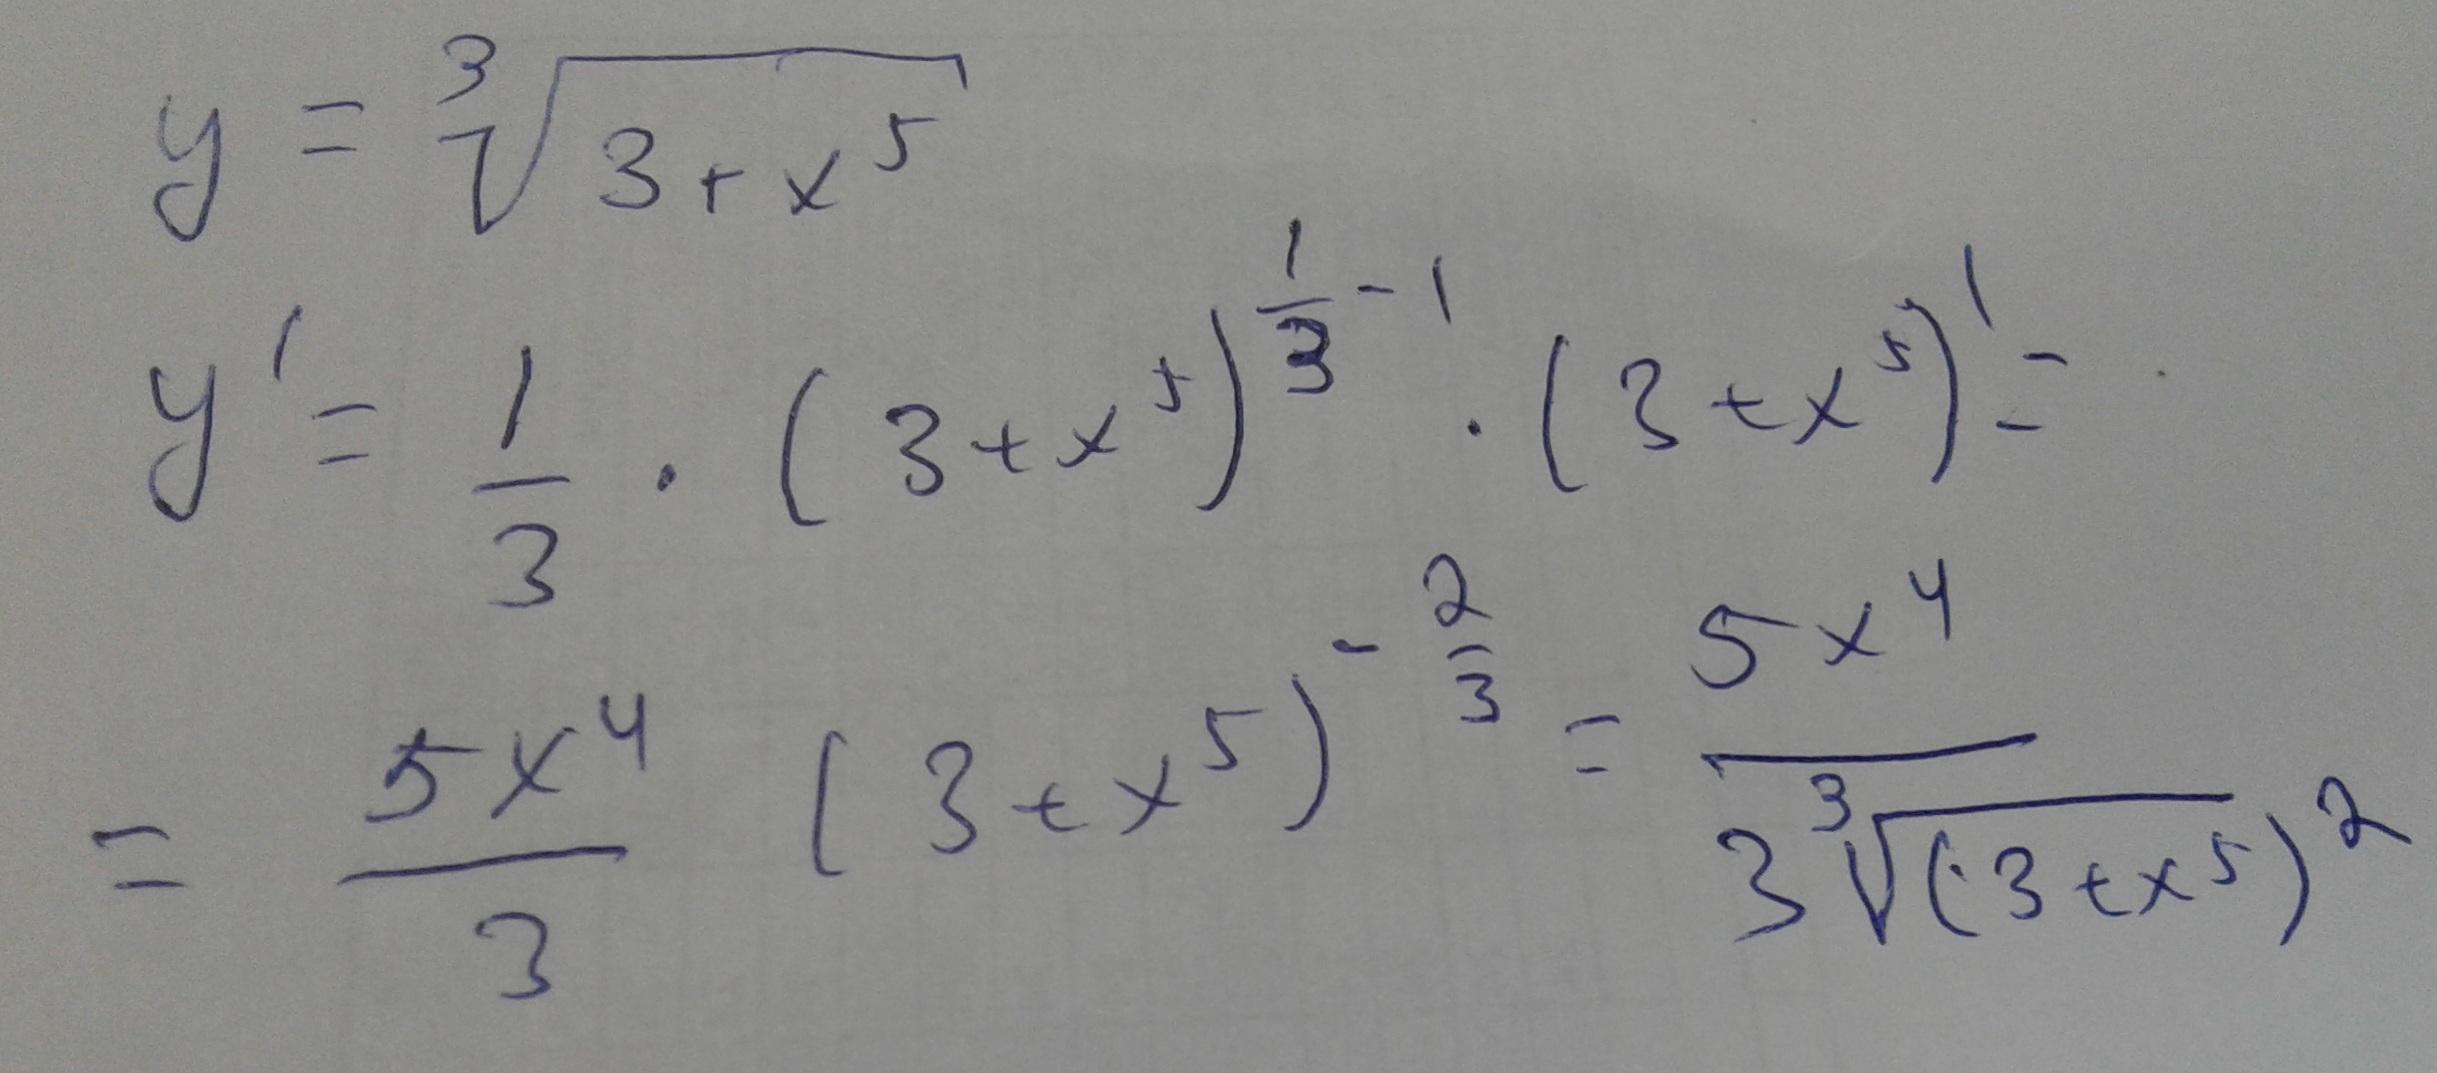 y = ∛(3+x⁵)
y' = 1/3 · (3+x⁵)^(1/3 - 1) · (3+x⁵)' =
= 5x⁴/3 (3+x⁵)^(-2/3) = 5x⁴/(3∛(3+x⁵)²)